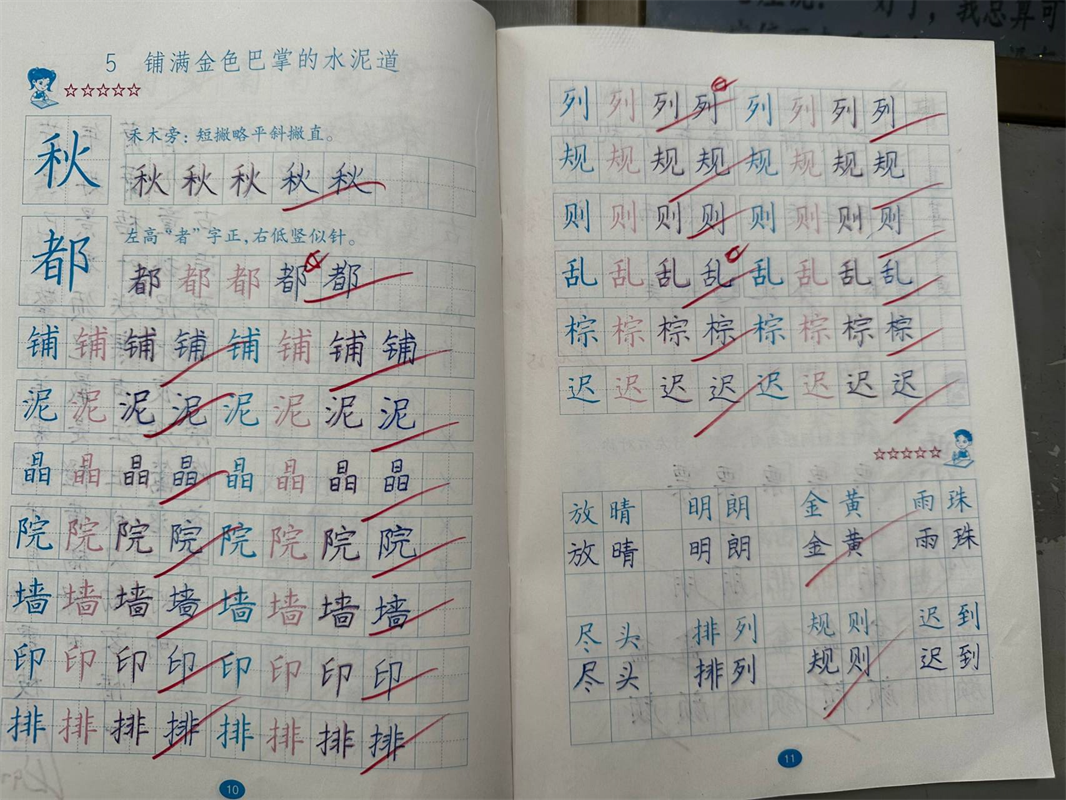 5 铺满金色巴掌的水泥道
☆☆☆☆☆
秋
禾木旁：短撇略平斜撇直。
秋秋秋秋秋
都
左高“者”字正，右低竖似针。
都都都都都
铺铺铺铺铺铺铺铺
泥泥泥泥泥泥泥泥
晶晶晶晶晶晶晶晶
院院院院院院院院
墙墙墙墙墙墙墙墙
印印印印印印印印
排排排排排排排排
10
列列列列列列列列
规规规规规规规规
则则则则则则则则
乱乱乱乱乱乱乱乱
棕棕棕棕棕棕棕棕
迟迟迟迟迟迟迟迟
☆☆☆☆☆
放晴 明朗 金黄 雨珠
放晴 明朗 金黄 雨珠
尽头 排列 规则 迟到
尽头 排列 规则 迟到
11
我总算可